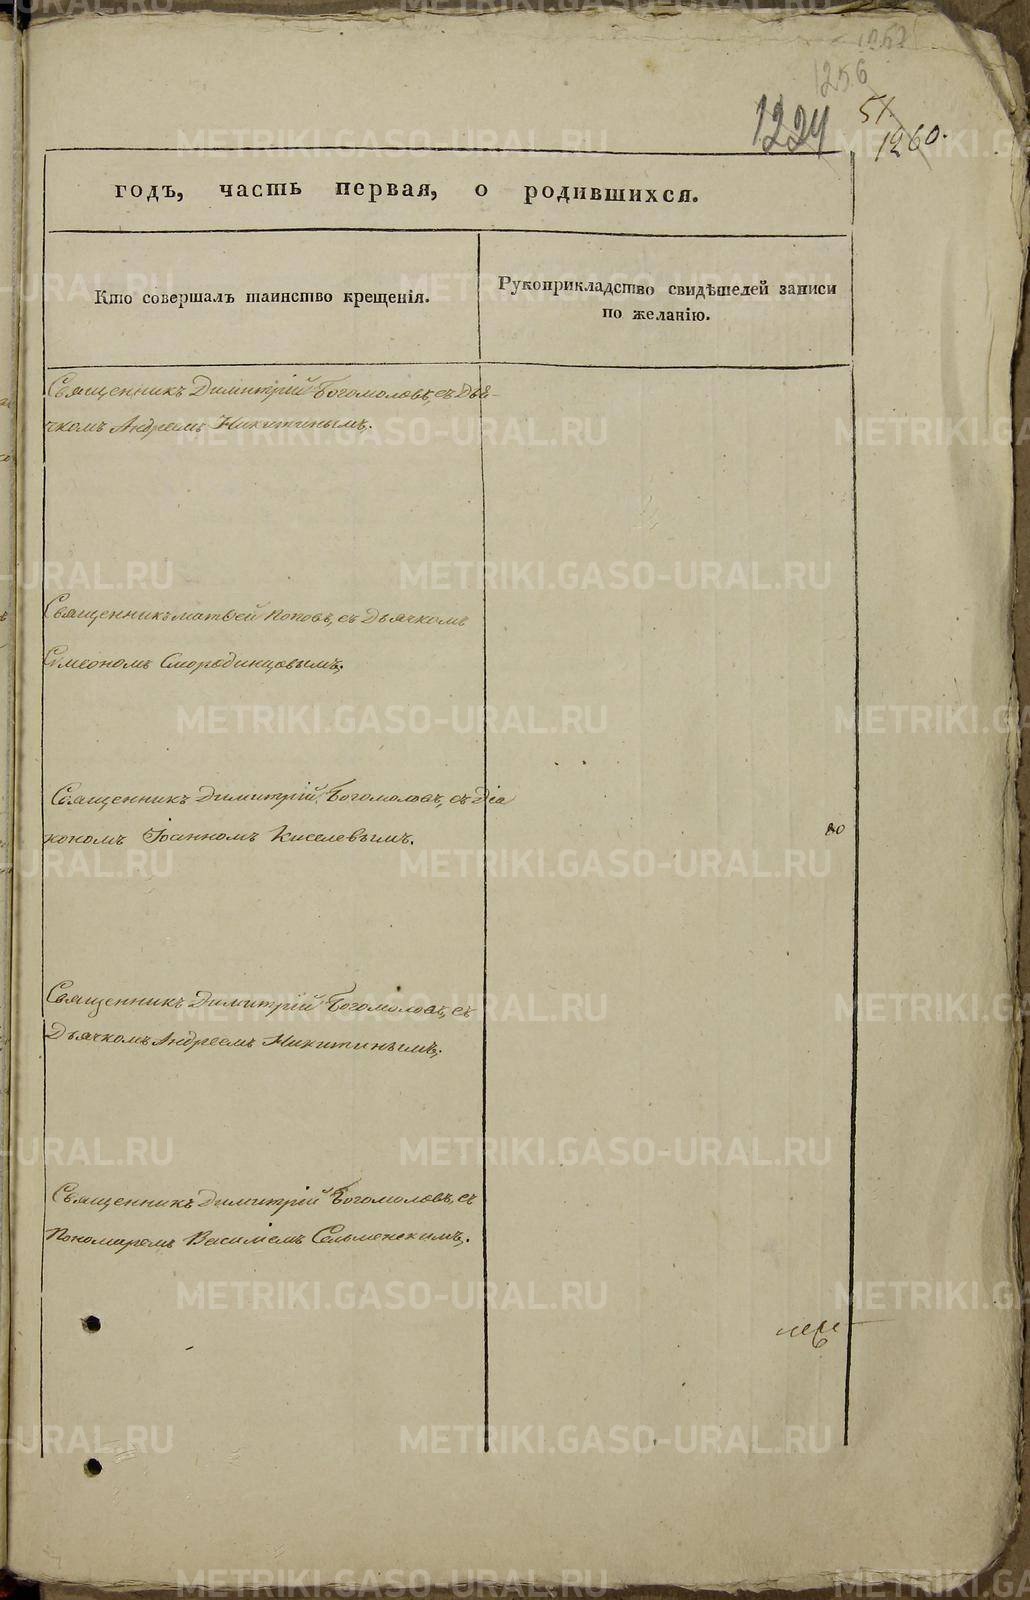 1257
1256
1224
51.
1260.
годъ, часть первая, о родившихся.
Кто совершалъ таинство крещенія.
Рукоприкладство свидѣтелей записи
по желанію.
Священникъ Димитрій Богомоловъ, съ Дья-
чкомъ Андреемъ Никитинымъ.
Священникъ матѳей Поповъ, съ Дьячкомъ
Симеономъ Смородинцовымъ.
Священникъ Димитрій Богомоловъ, съ Діа
кономъ Іоанномъ Киселевымъ.
Священникъ Димитрій Богомоловъ, съ
Дьячкомъ Андреемъ Никитинымъ.
Священникъ Димитрій Богомоловъ, съ
Пономаремъ Василіемъ Сельменскимъ.
METRIKI.GASO-URAL.RU